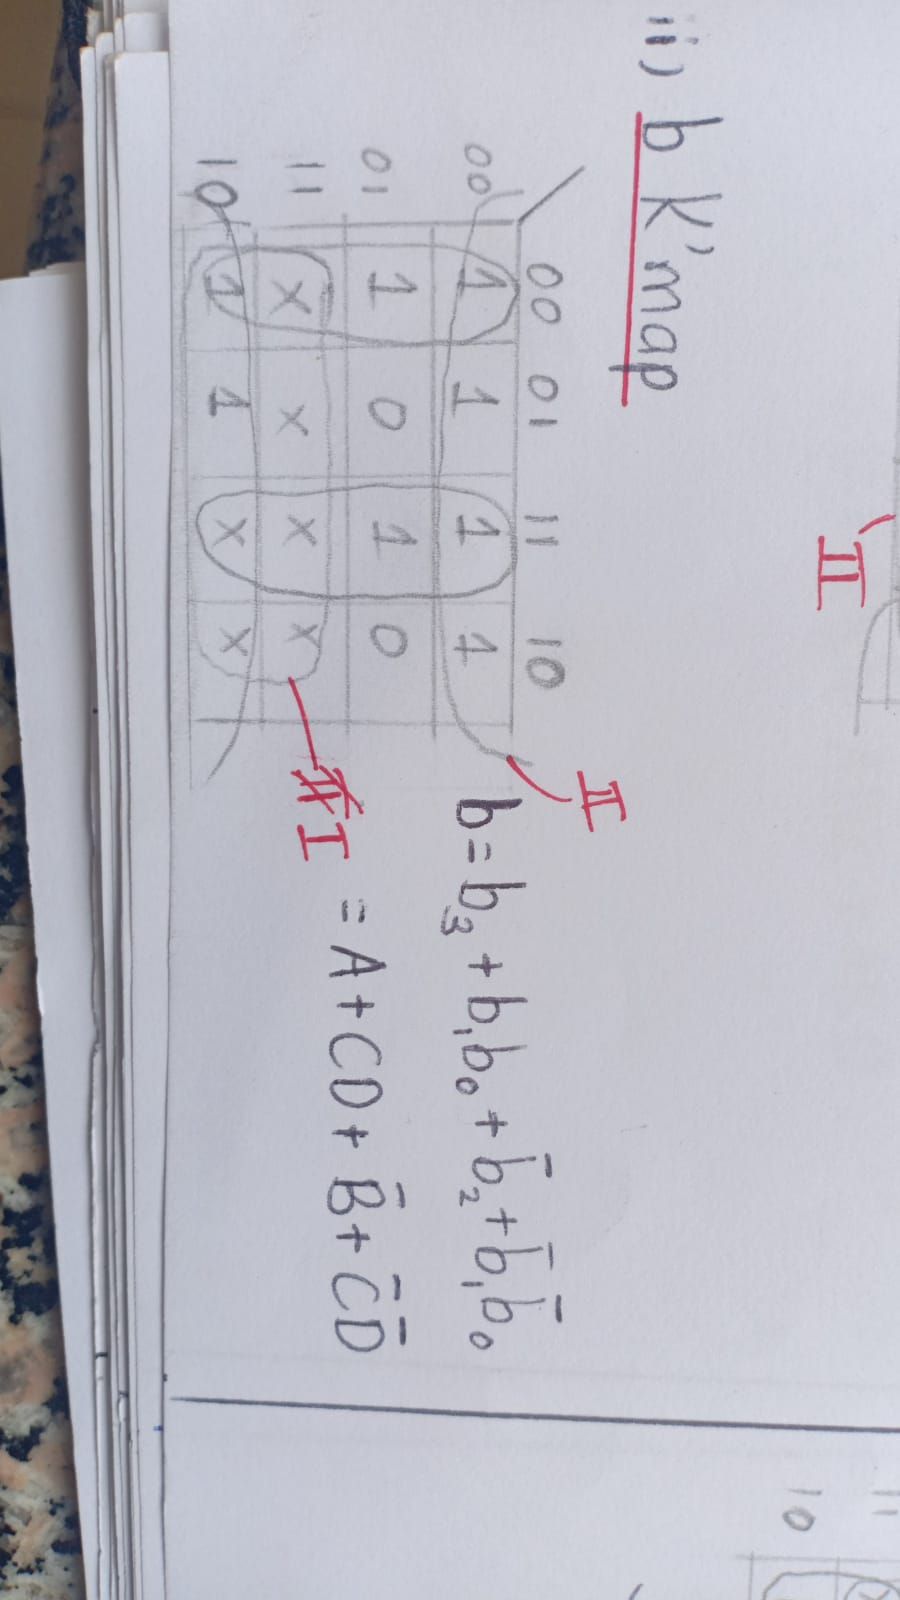 ii) b K'map
00 01 11 10
00 1 1 1 1
01 1 0 1 0
11 X X X X
10 1 1 X X
II
I
b = b₃ + b₁b₀ + b̄₂ + b̄₁b̄₀
= A + CD + B̄ + C̄D̄
II
11
10